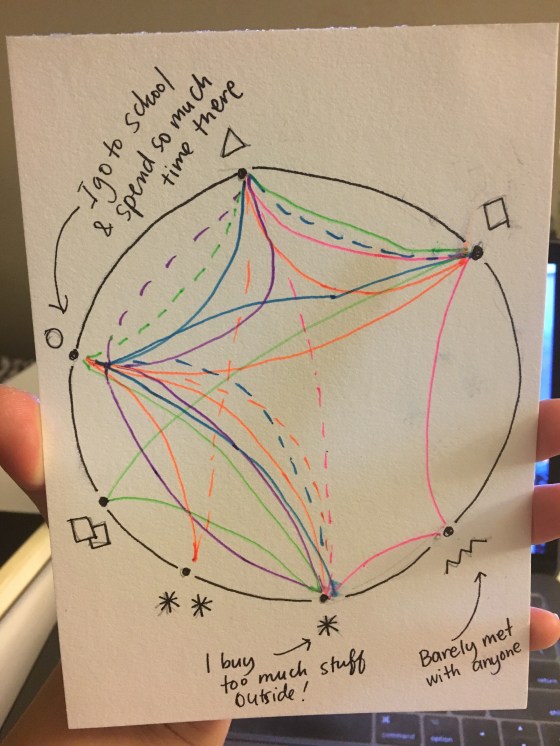 I go to school
& spend so much
time there
I buy
too much stuff
outside!
Barely met
with anyone
command
option
return